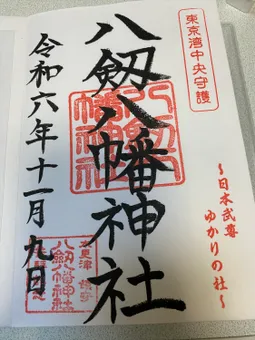 東京湾中央守護
八剱八幡神社
～日本武尊
ゆかりの社～
令和六年十一月九日
木更津 鎮守
八剱八幡神社